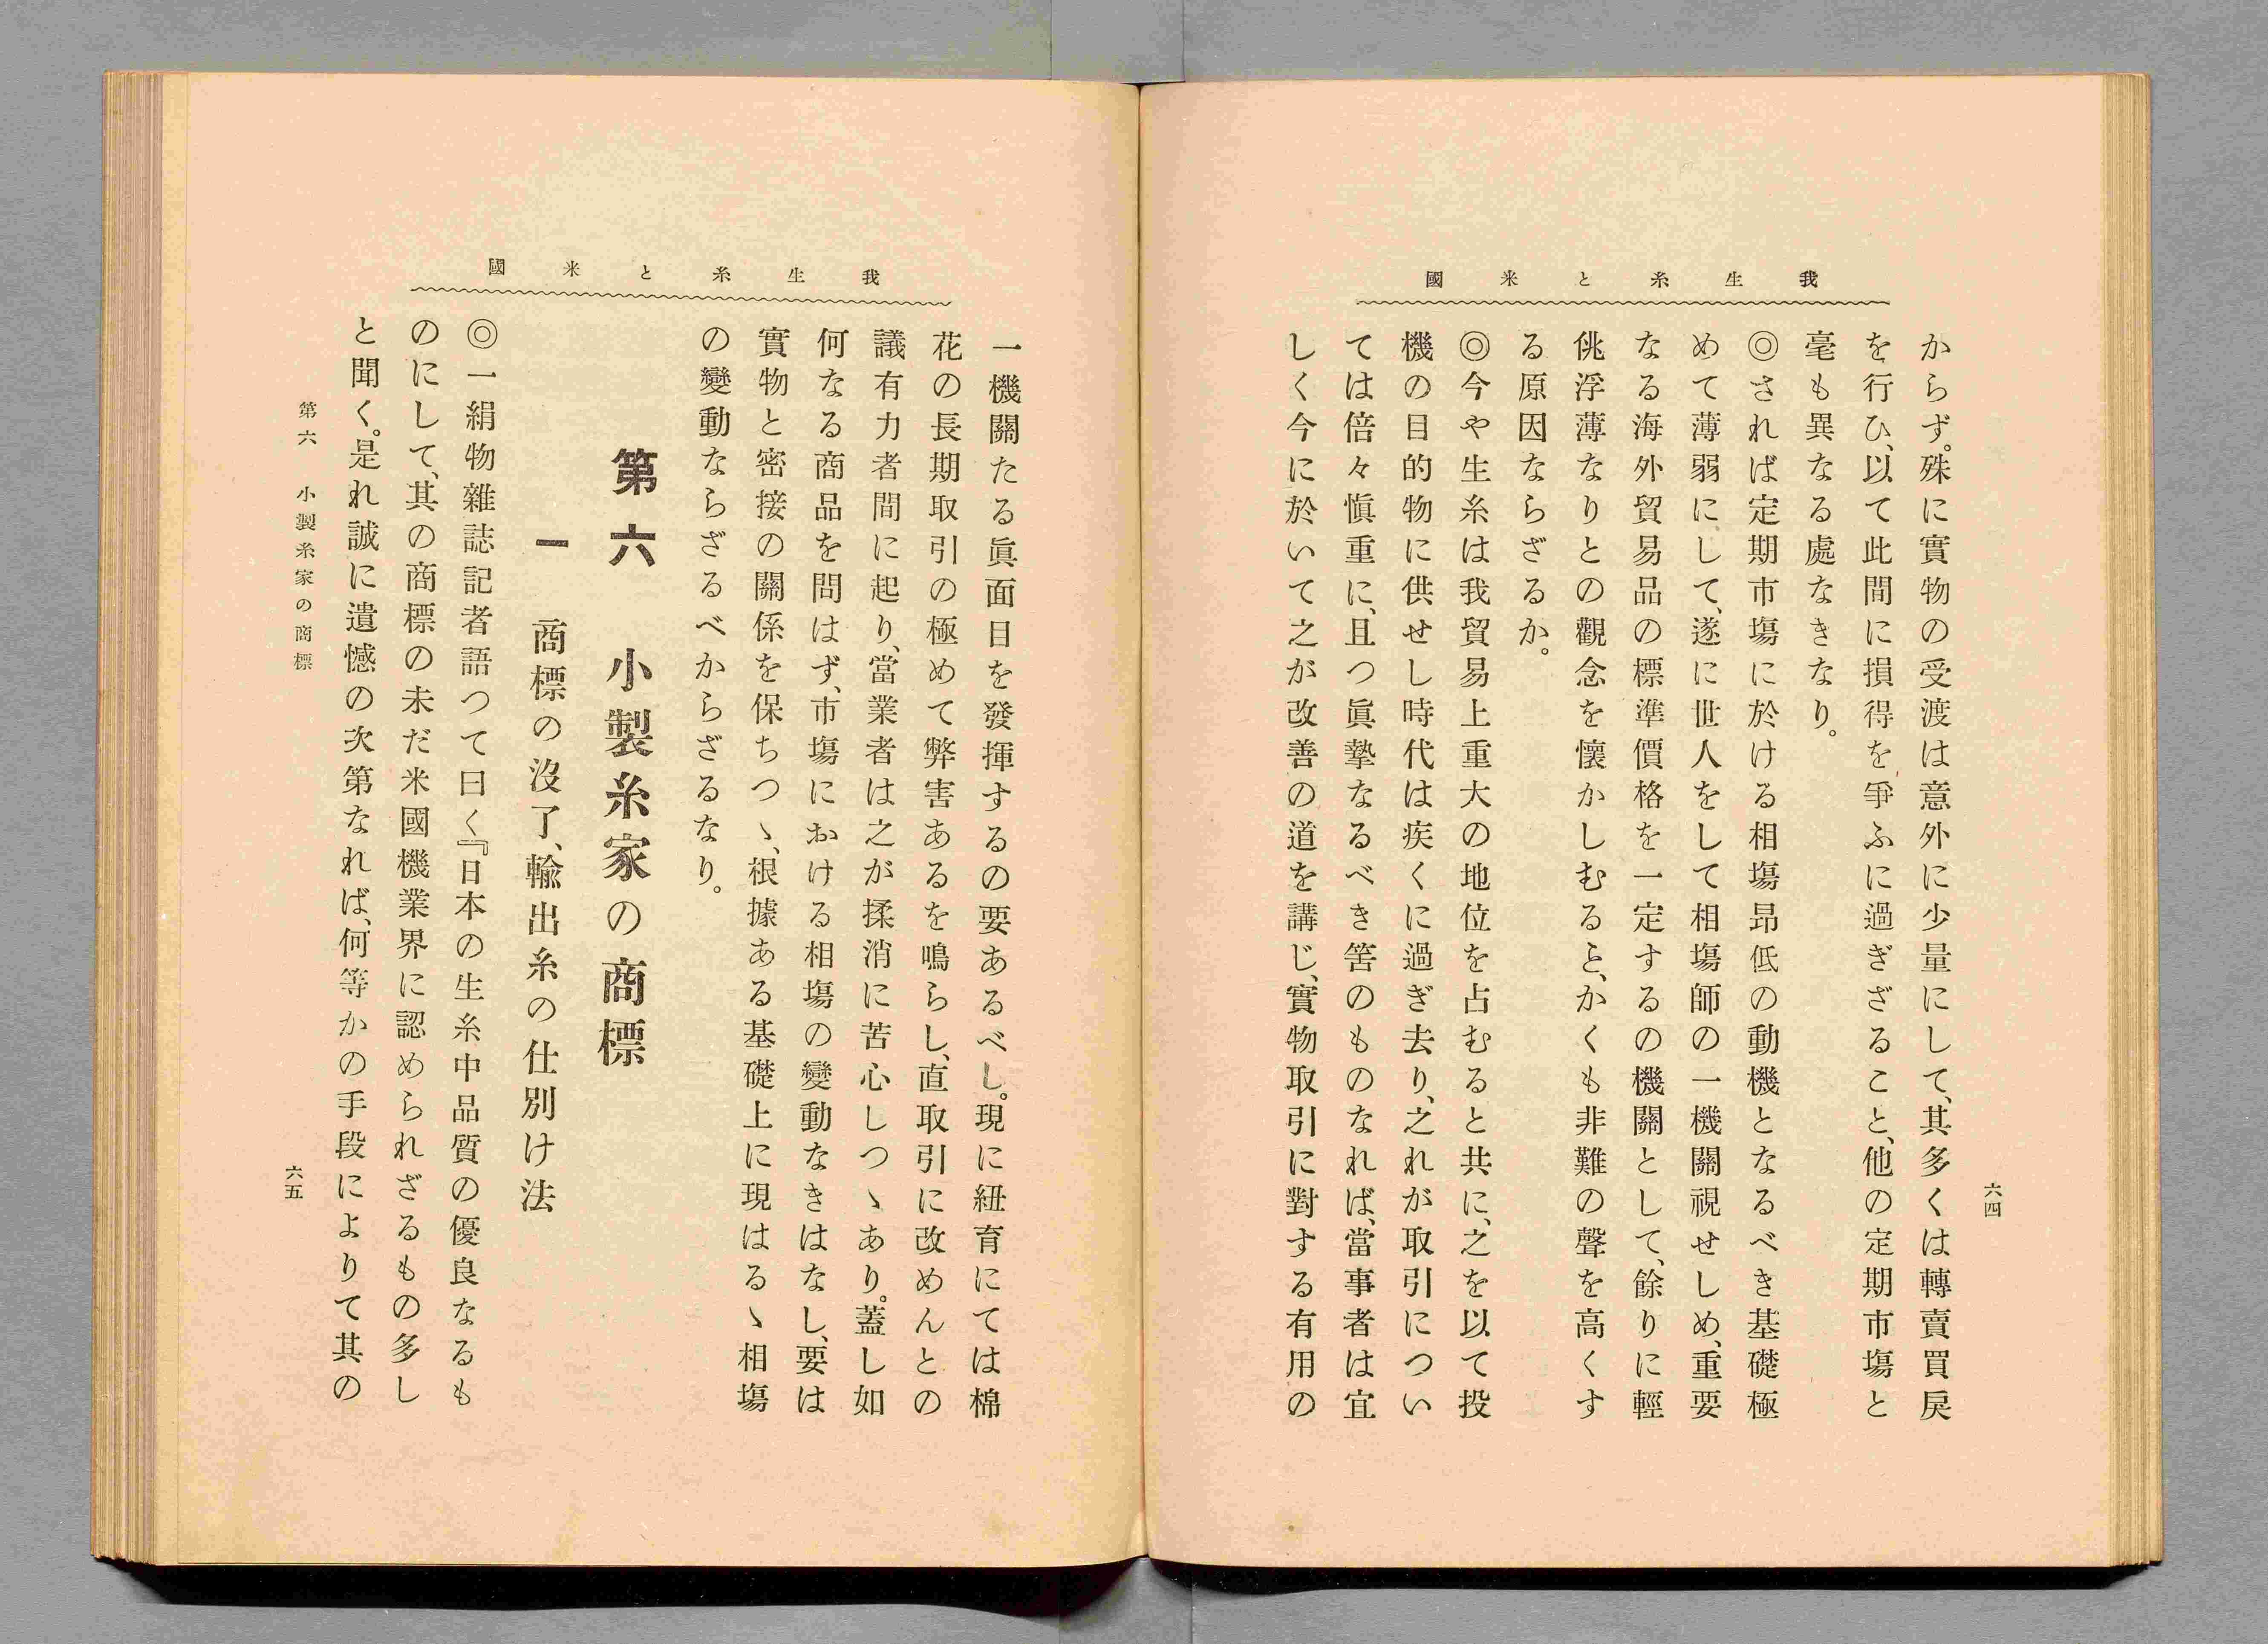 我生糸と米國
からず。殊に實物の受渡は意外に少量にして、其多くは轉賣買戾
を行ひ、以て此間に損得を爭ふに過ぎざること、他の定期市塲と
毫も異なる處なきなり。
◎されば定期市塲に於ける相塲昂低の動機となるべき基礎極
めて薄弱にして、遂に世人をして相塲師の一機關視せしめ、重要
なる海外貿易品の標準價格を一定するの機關として、餘りに輕
佻浮薄なりとの觀念を懷かしむると、かくも非難の聲を高くす
る原因ならざるか。
◎今や生糸は我貿易上重大の地位を占むると共に、之を以て投
機の目的物に供せし時代は疾くに過ぎ去り、之れが取引につい
ては倍々愼重に、且つ眞摯なるべき筈のものなれば、當事者は宜
しく今に於いて之が改善の道を講じ、實物取引に對する有用の
六四
我生糸と米國
一機關たる眞面目を發揮するの要あるべし。現に紐育にては棉
花の長期取引の極めて弊害あるを鳴らし、直取引に改めんとの
議有力者間に起り、當業者は之が揉消に苦心しつゝあり。蓋し如
何なる商品を問はず、市塲における相塲の變動なきはなし、要は
實物と密接の關係を保ちつゝ、根據ある基礎上に現はるゝ相塲
の變動ならざるべからざるなり。
第六　小製糸家の商標
一　商標の沒了、輸出糸の仕別け法
◎一絹物雜誌記者語つて曰く『日本の生糸中品質の優良なるも
のにして、其の商標の未だ米國機業界に認められざるもの多し
と聞く。是れ誠に遺憾の次第なれば、何等かの手段によりて其の
第六　小製糸家の商標
六五